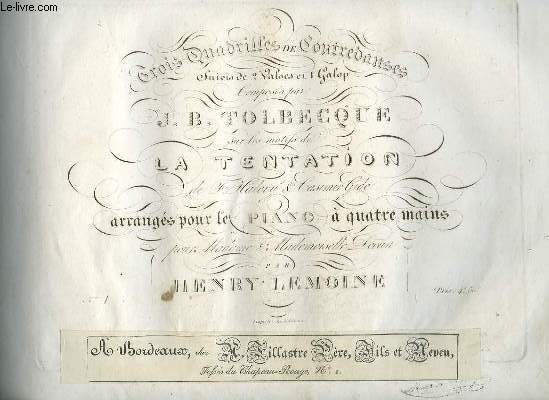 Le-livre.com
Trois Quadrilles de Contredanses
Suivis de 2 Valses et 1 Galop
Composés par
J. B. TOLBECQUE
sur les motifs de
LA TENTATION
de F. Halevy & Casimir Gide
arrangés pour le PIANO à quatre mains
pour Madame & Mademoiselle
PAR
HENRY LEMOINE
Prix
A Bordeaux, chez Fillastre Père, Fils et Neveu,
Fossés du Chapeau-Rouge, N.